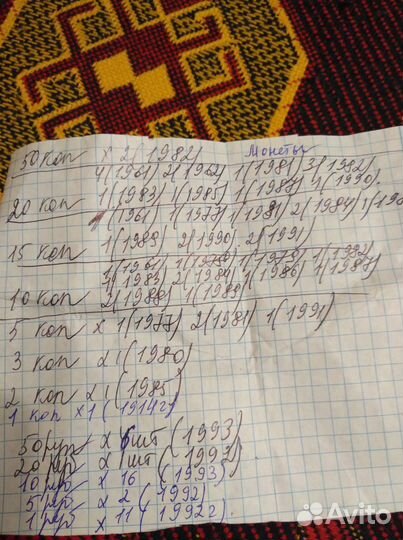 Монеты
50 коп х 2(1982)
4(1961) 2(1962) 1(1981) 3(1982)
1(1983) 1(1985) 1(1987) 4(1990).
20 коп
(1961) 1(1977) 1(1981) 2(1984)
1(1989) 2(1990) 2(1991)
15 коп
1(1961) 1(1982)
1(1983) 2(1984) 1(1986) 1(1987)
10 коп 2(1988) 1(1989)
5 коп х 1(1977) 2(1981) 1(1991)
3 коп х 1(1980)
2 коп х 1(1985)
1 коп х1 (1914г)
50 руб х 6шт (1993)
20 руб х 1шт (1992)
10 руб х 16 (1993)
5 руб х 2 (1992)
1 руб х 11 (1992г.
Avito